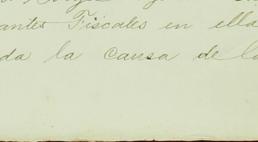 antes Fiscales en ella
da la causa de la